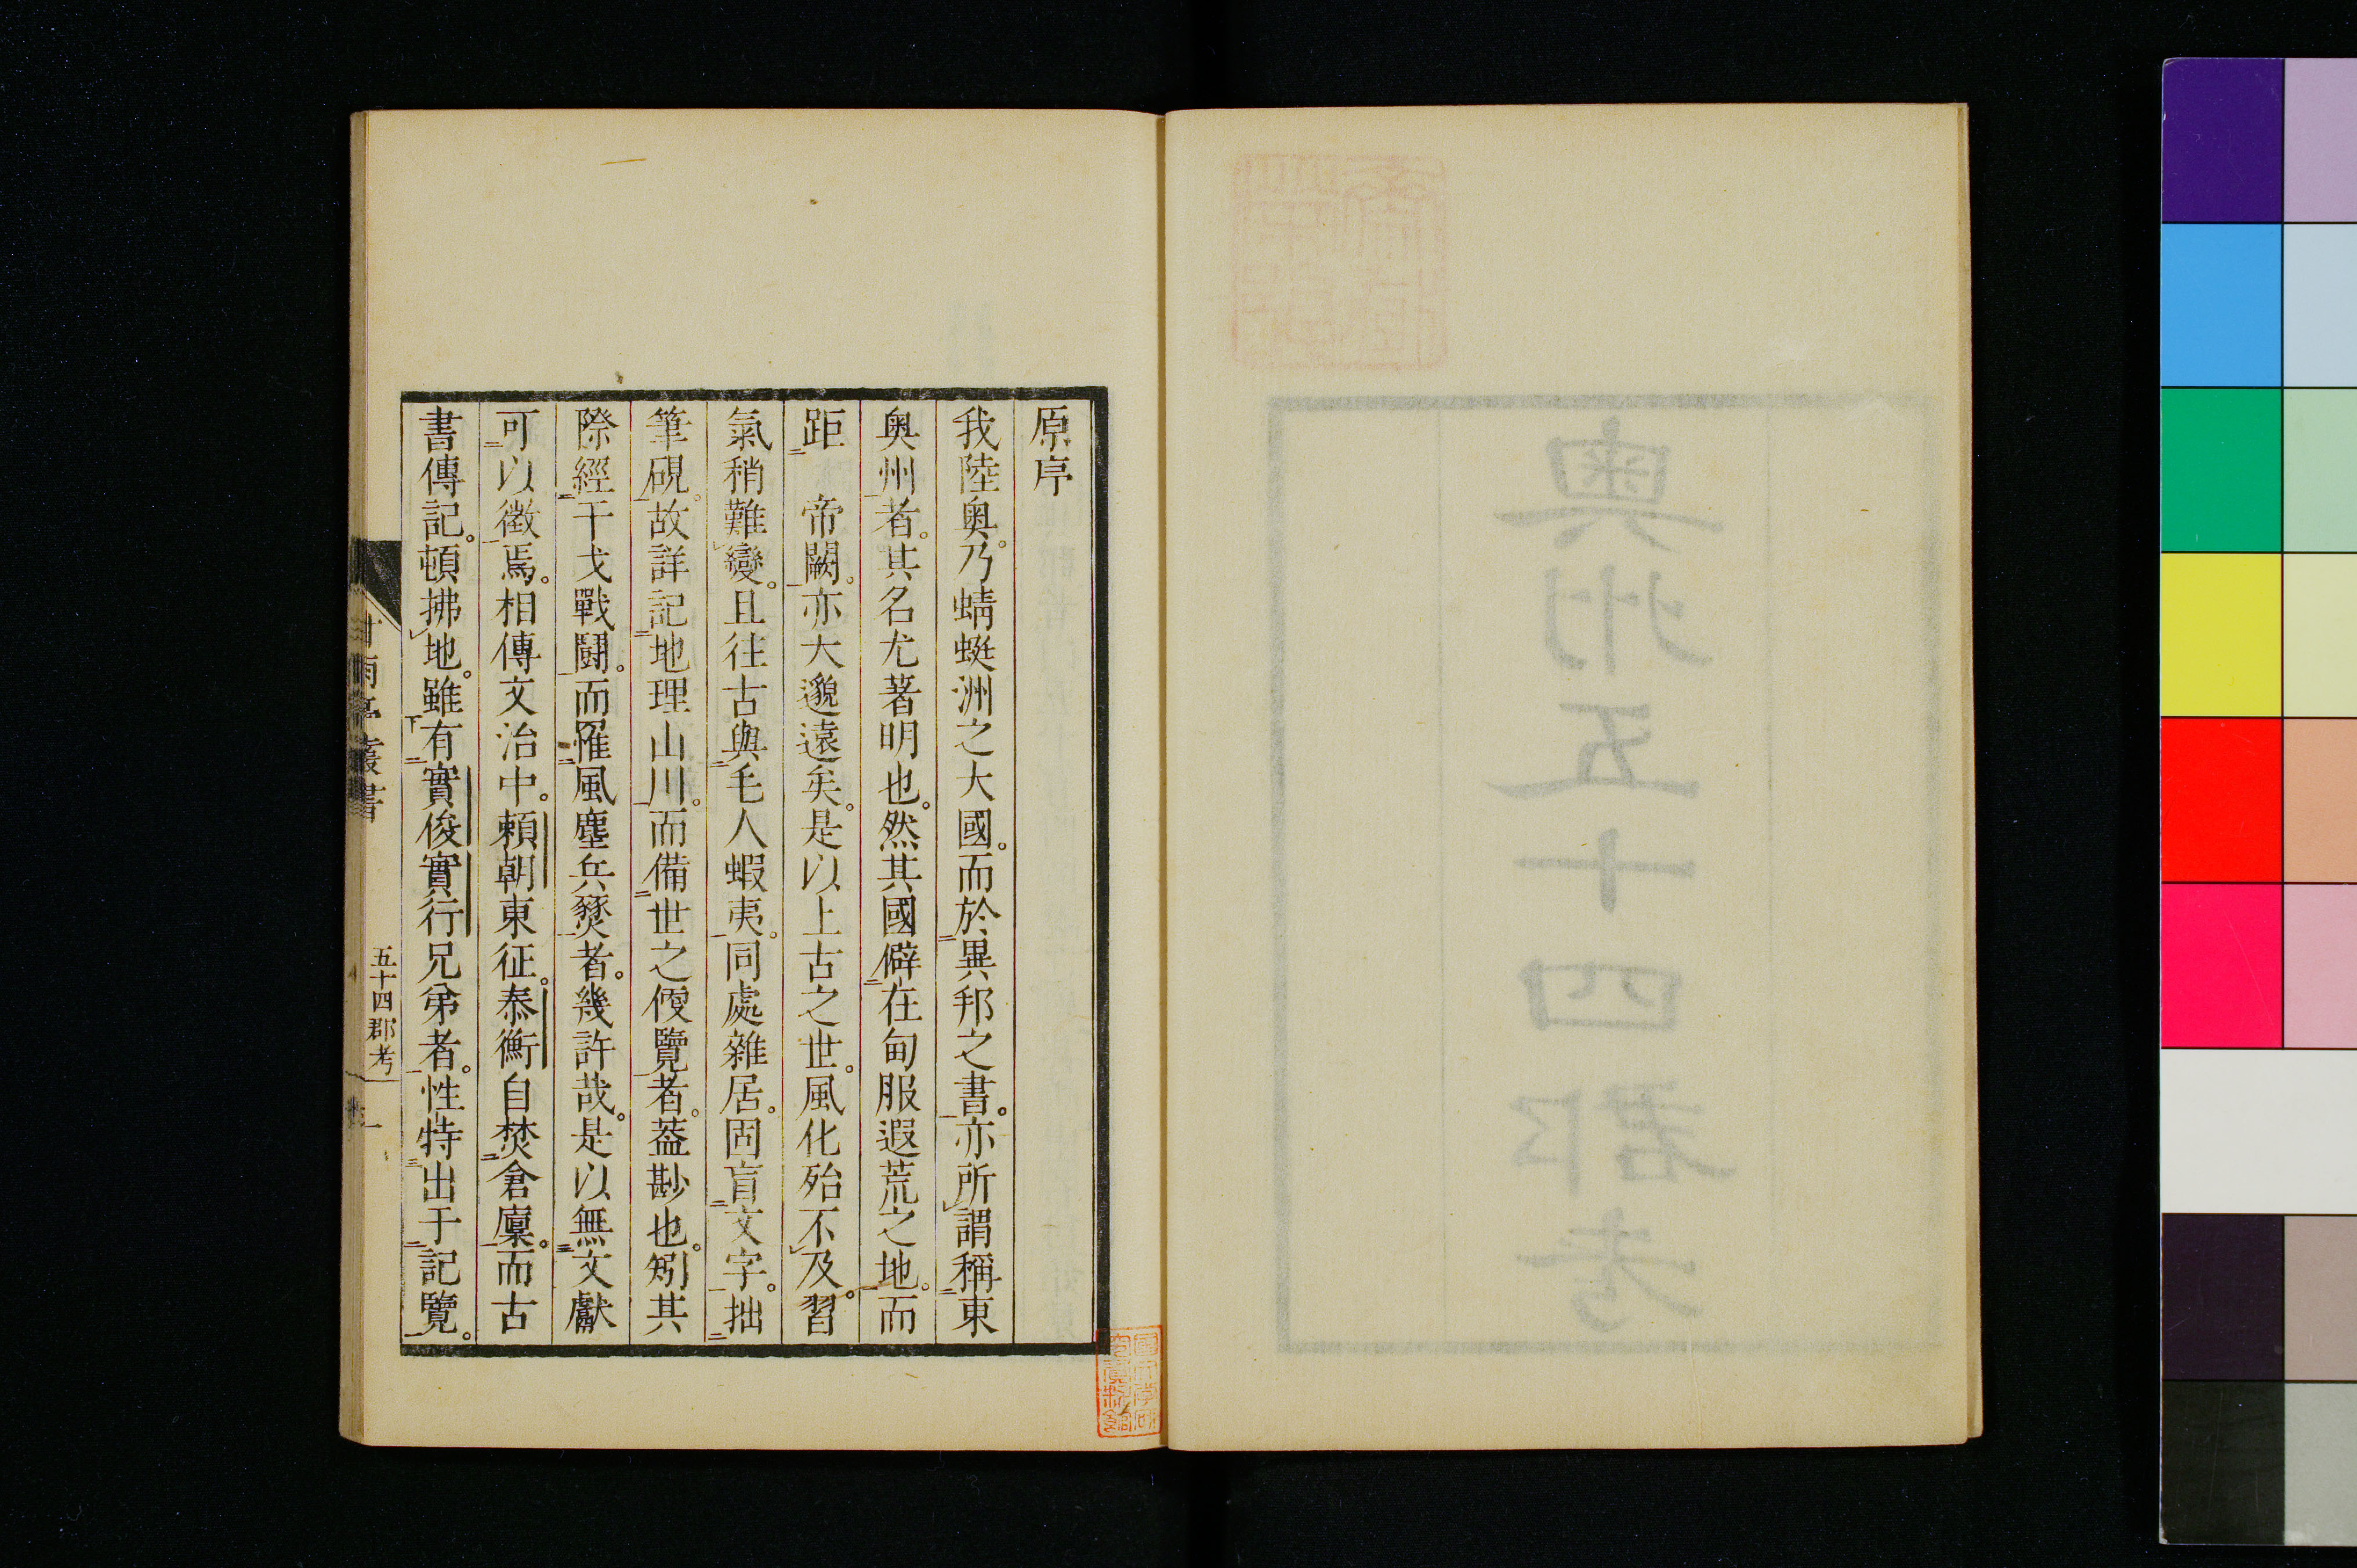 奥州五十四郡考
原序
我陸奥。乃蜻蜓洲之大國。而於異邦之書。亦所謂稱東
奥州者。其名尤著明也。然其國僻在甸服遐荒之地。而
距　帝闕。亦大邈遠矣。是以上古之世。風化殆不及。習
氣稍難變。且往古與毛人蝦夷。同處雜居。固盲文字。拙
筆硯。故詳記地理山川。而備世之便覽者。葢尠也。矧其
際經干戈戰鬪。而罹風塵兵燹者。幾許哉。是以無文獻
可以徵焉。相傳文治中。頼朝東征。泰衡自焚倉廩。而古
書傳記。頓拂地。雖有實俊實行兄弟者。性特出于記覽。
甘雨亭叢書
五十四郡考
一